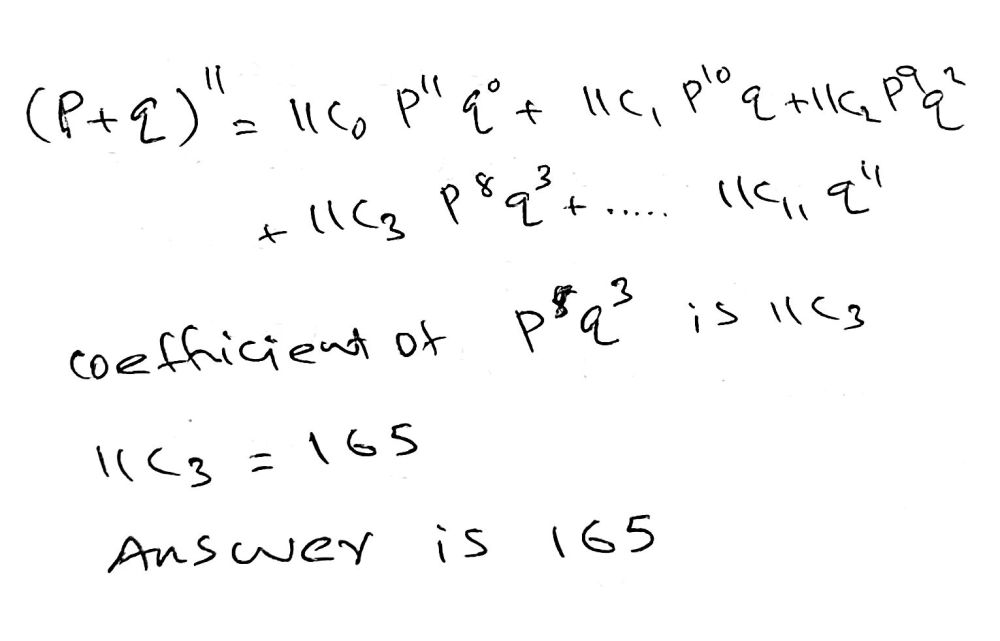 (P+q)¹¹ = 11C₀ P¹¹ q⁰ + 11C₁ P¹⁰ q + 11C₂ P⁹q²
+ 11C₃ P⁸ q³ + ..... 11C₁₁ q¹¹
coefficient of P⁸q³ is 11C₃
11C₃ = 165
Answer is 165